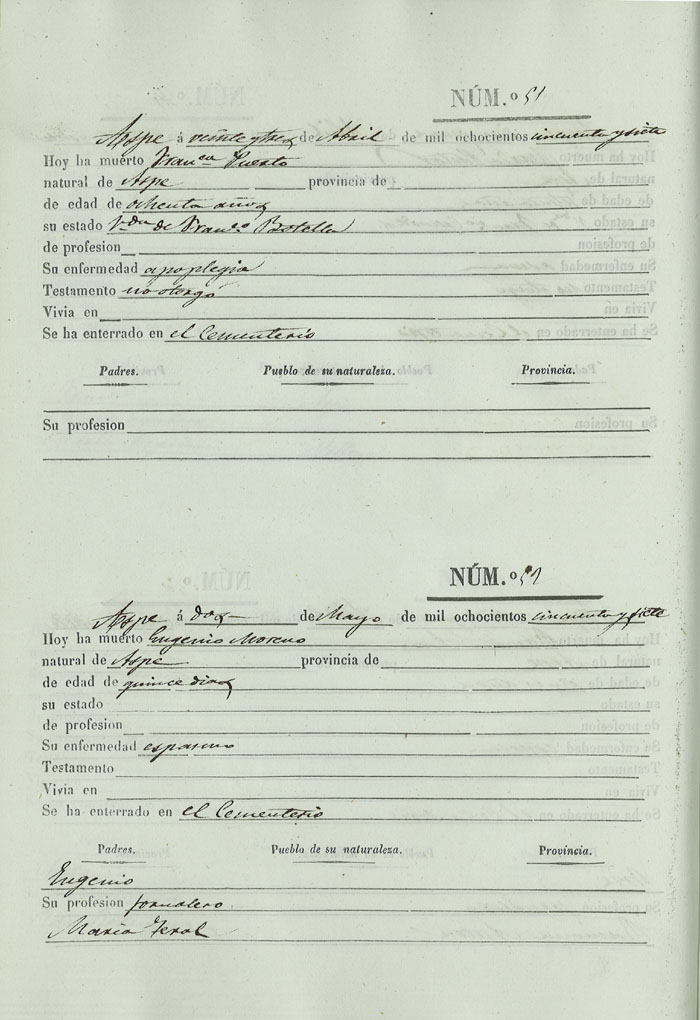 NÚM.º 51
Aspe á veinte y tres de Abril de mil ochocientos cincuenta y siete
Hoy ha muerto Franca Puerto
natural de Aspe provincia de
de edad de ochenta años
su estado Vda de Franco Botella
de profesion
Su enfermedad apoplegia
Testamento no otorgó
Vivia en
Se ha enterrado en el Cementerio
Padres. Pueblo de su naturaleza. Provincia.
Su profesion
NÚM.º
Aspe á dos de Mayo de mil ochocientos cincuenta y siete
Hoy ha muerto Eugenio Moreno
natural de Aspe provincia de
de edad de quince dias
su estado
de profesion
Su enfermedad espasmo
Testamento
Vivia en
Se ha enterrado en el Cementerio
Padres. Pueblo de su naturaleza. Provincia.
Eugenio
Su profesion jornalero
Maria